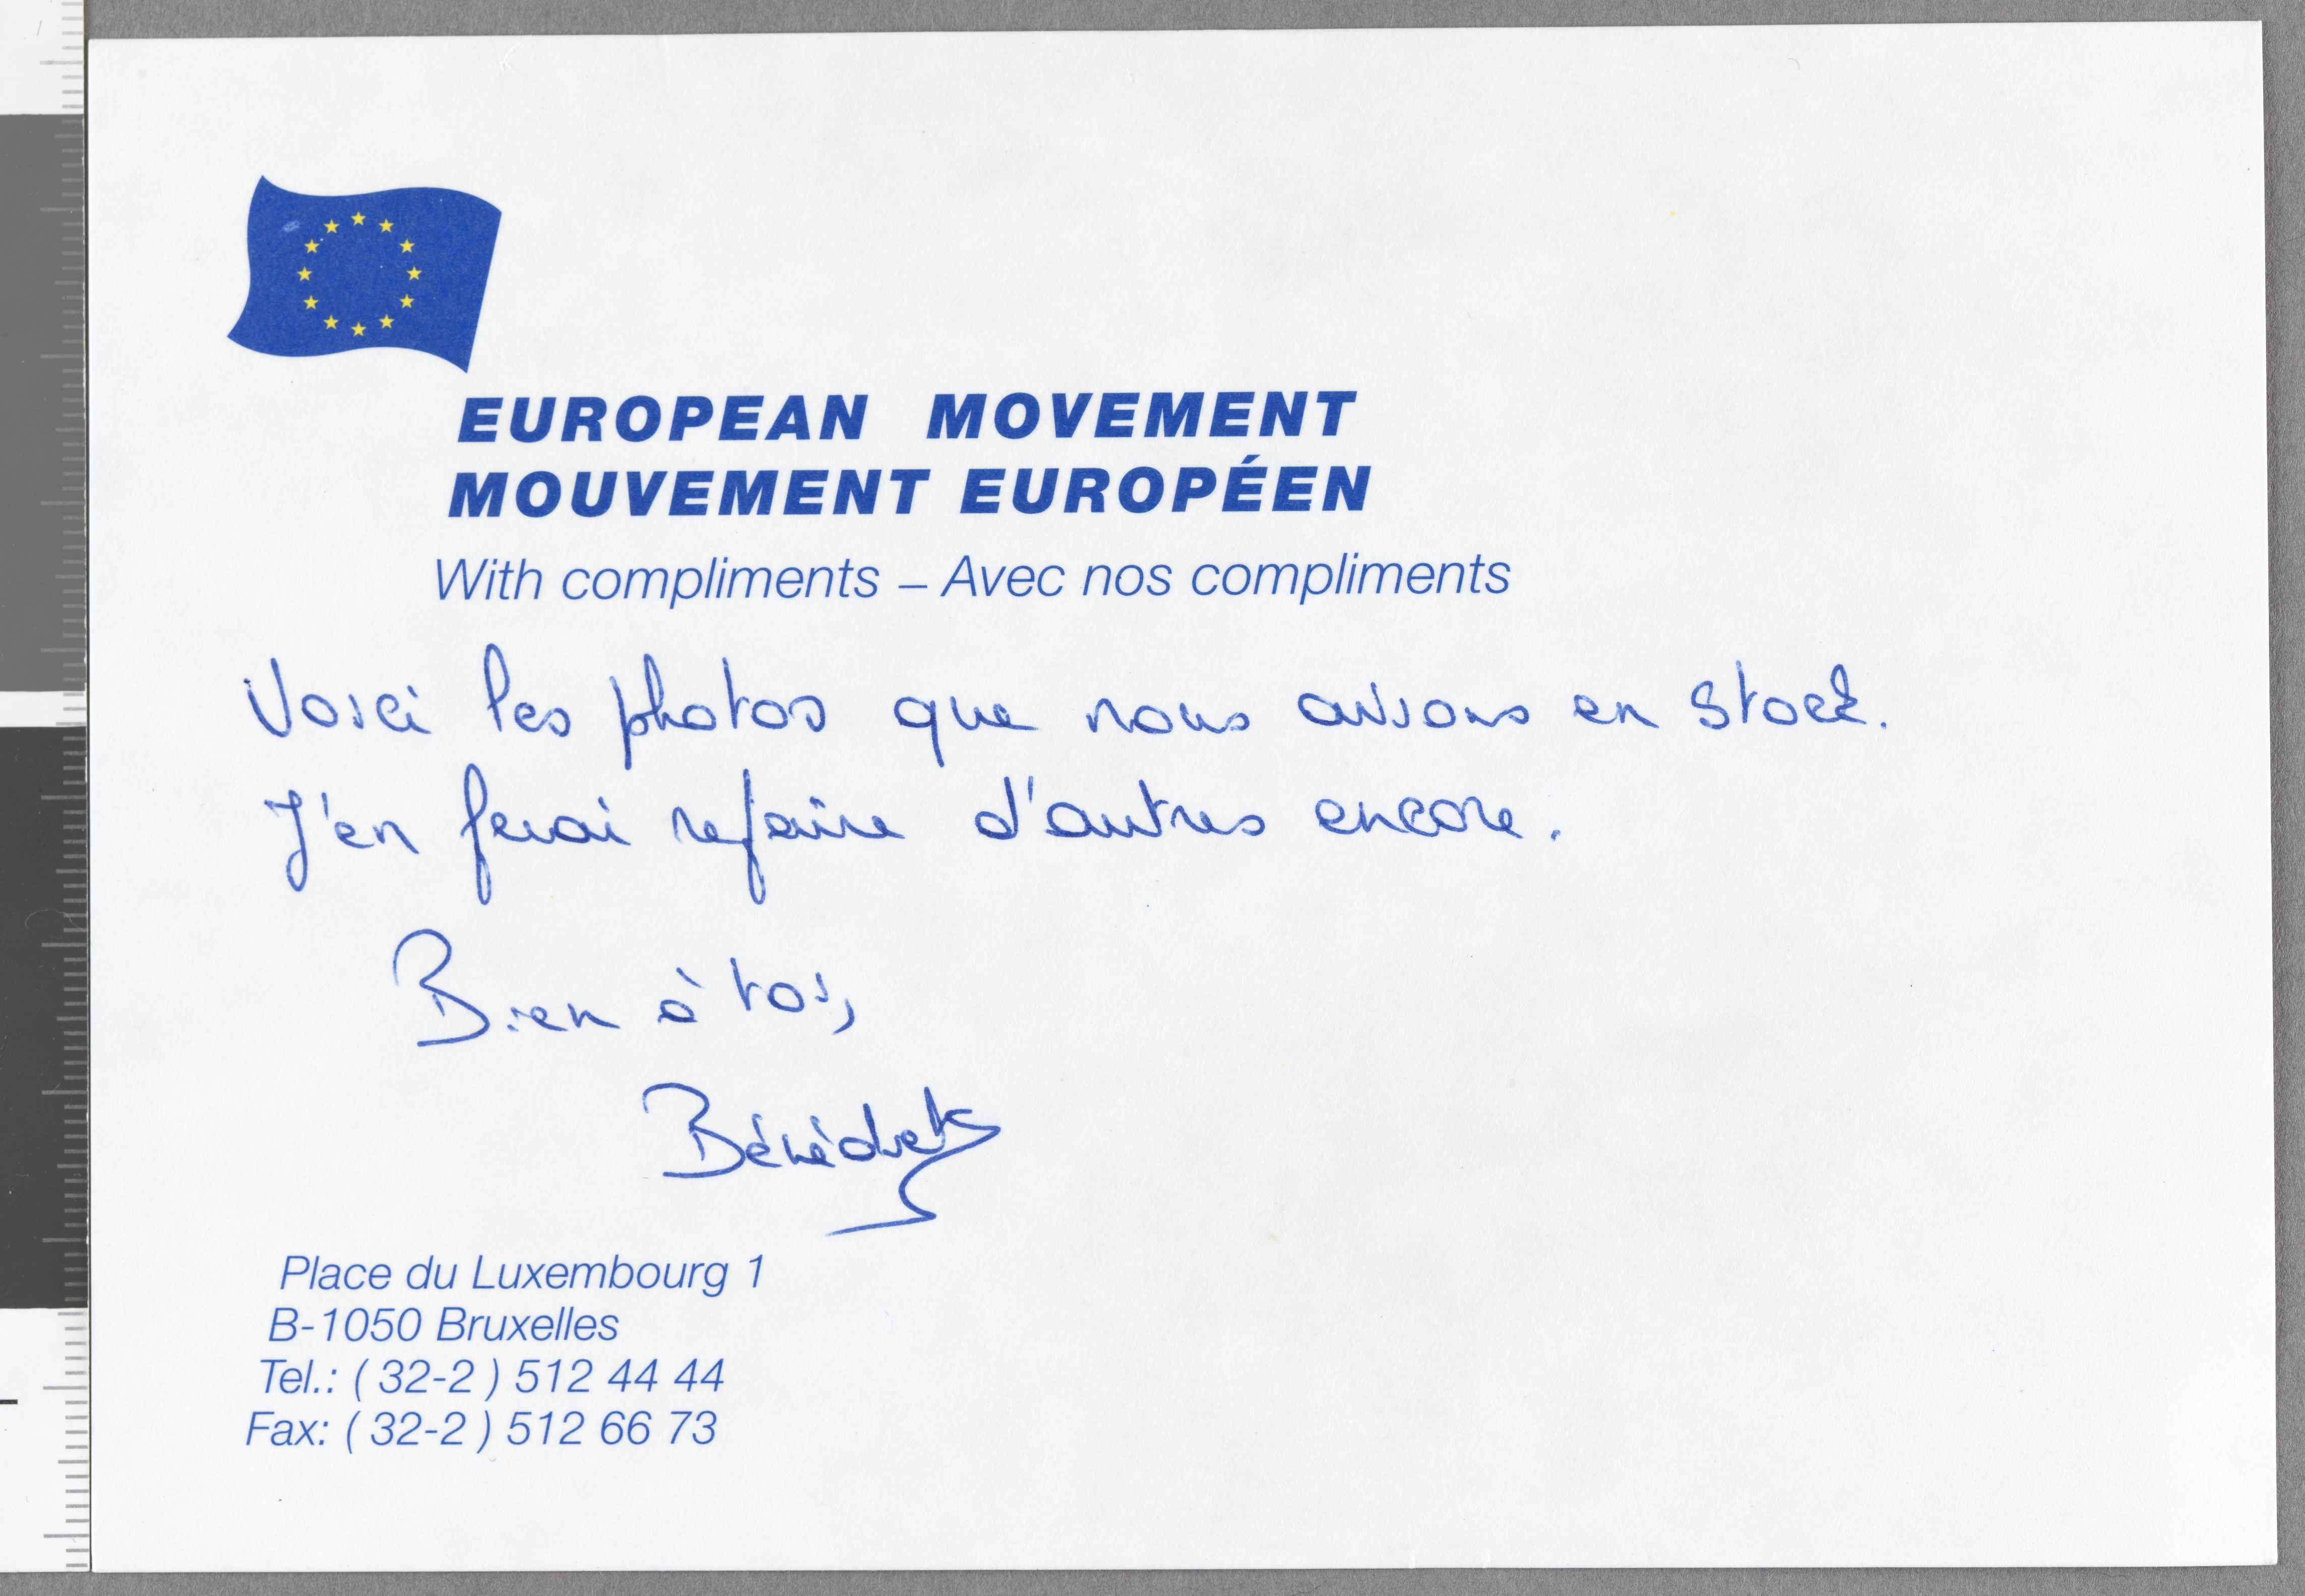 EUROPEAN MOVEMENT
MOUVEMENT EUROPÉEN
With compliments – Avec nos compliments
Voici les photos que nous avions en stock.
J'en ferai refaire d'autres encore.
Bien à toi,
Bénédicte
Place du Luxembourg 1
B-1050 Bruxelles
Tel.: ( 32-2 ) 512 44 44
Fax: ( 32-2 ) 512 66 73